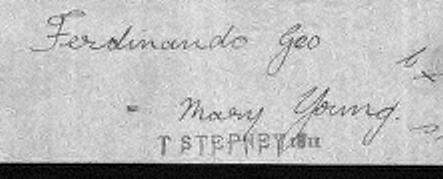 Ferdinando Geo
= Mary Young.
T STEPNEY